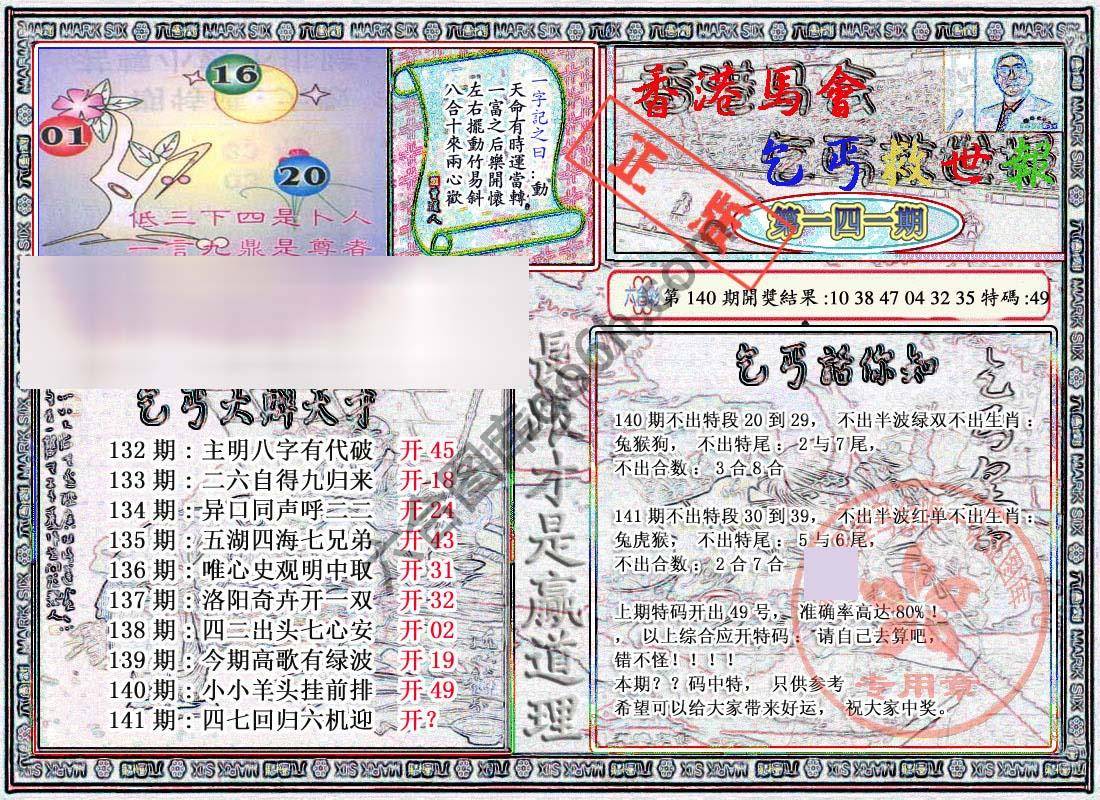 MARK SIX
16
01
20
低三下四是卜人
一言九鼎是尊者
一字記之曰:動
天命有時運當轉
一富之后樂開懷
左右擺動竹易斜
八合十來兩心歡
香港馬會
乞丐救世報
第一四一期
正
第 140 期開獎結果 :10 38 47 04 32 35 特碼 :49
長久才是赢道理
132 期 : 主明八字有代破 开 45
133 期 : 二六自得九归来 开 18
134 期 : 异口同声呼三三 开 24
135 期 : 五湖四海七兄弟 开 43
136 期 : 唯心史观明中取 开 31
137 期 : 洛阳奇卉开一双 开 32
138 期 : 四二出头七心安 开 02
139 期 : 今期高歌有绿波 开 19
140 期 : 小小羊头挂前排 开 49
141 期 : 四七回归六机迎 开?
乞丐話你知
140 期不出特段 20 到 29， 不出半波绿双不出生肖 :
兔猴狗， 不出特尾 : 2 与 7 尾，
不出合数 : 3 合 8 合
141 期不出特段 30 到 39， 不出半波红单不出生肖 :
兔虎猴， 不出特尾 : 5 与 6 尾，
不出合数 : 2 合 7 合
上期特码开出 49 号， 准确率高达 80% !
， 以上综合应开特码 : 请自己去算吧，
错不怪 ! ! ! !
本期 ? ? 码中特， 只供参考
希望可以给大家带来好运， 祝大家中奖。
专用章